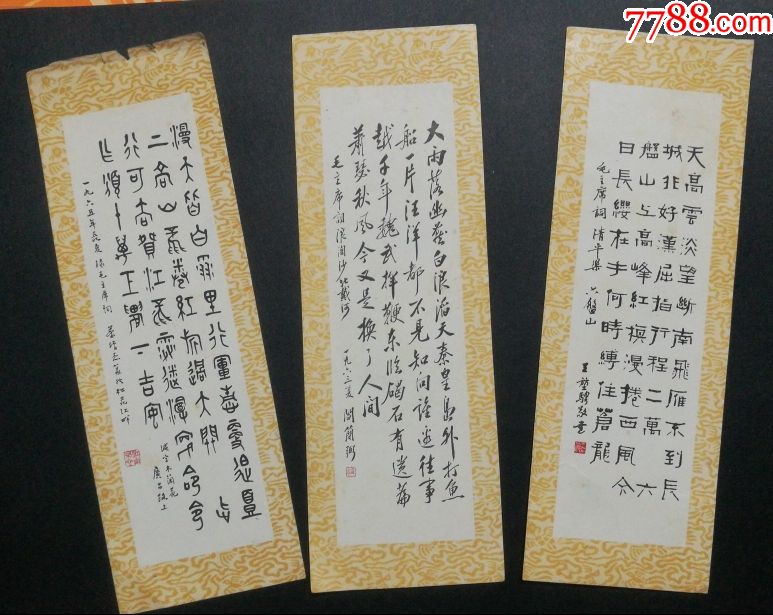 7788.com
天高雲淡望斷南飛雁不到長
城非好漢屈指行程二萬六
盤山上高峰紅旗漫捲西風今
日長纓在手何時縛住蒼龍
毛主席詞清平樂 六盤山
敬書
大雨落幽燕白浪滔天秦皇島外打魚
船一片汪洋都不見知向誰邊往事
越千年魏武揮鞭東臨碣石有遺篇
蕭瑟秋風今又是換了人間
毛主席詞浪淘沙北戴河 一九六三夏 閻簡弼
漫天皆白雪里行軍情更迫頭
上高山風卷紅旗過大關此
行何去贛江風雪迷漫處命令
昨頒十萬工農下吉安
減字木蘭花
廣昌路上
一九六五年 夏 錄毛主席詞 松花江畔